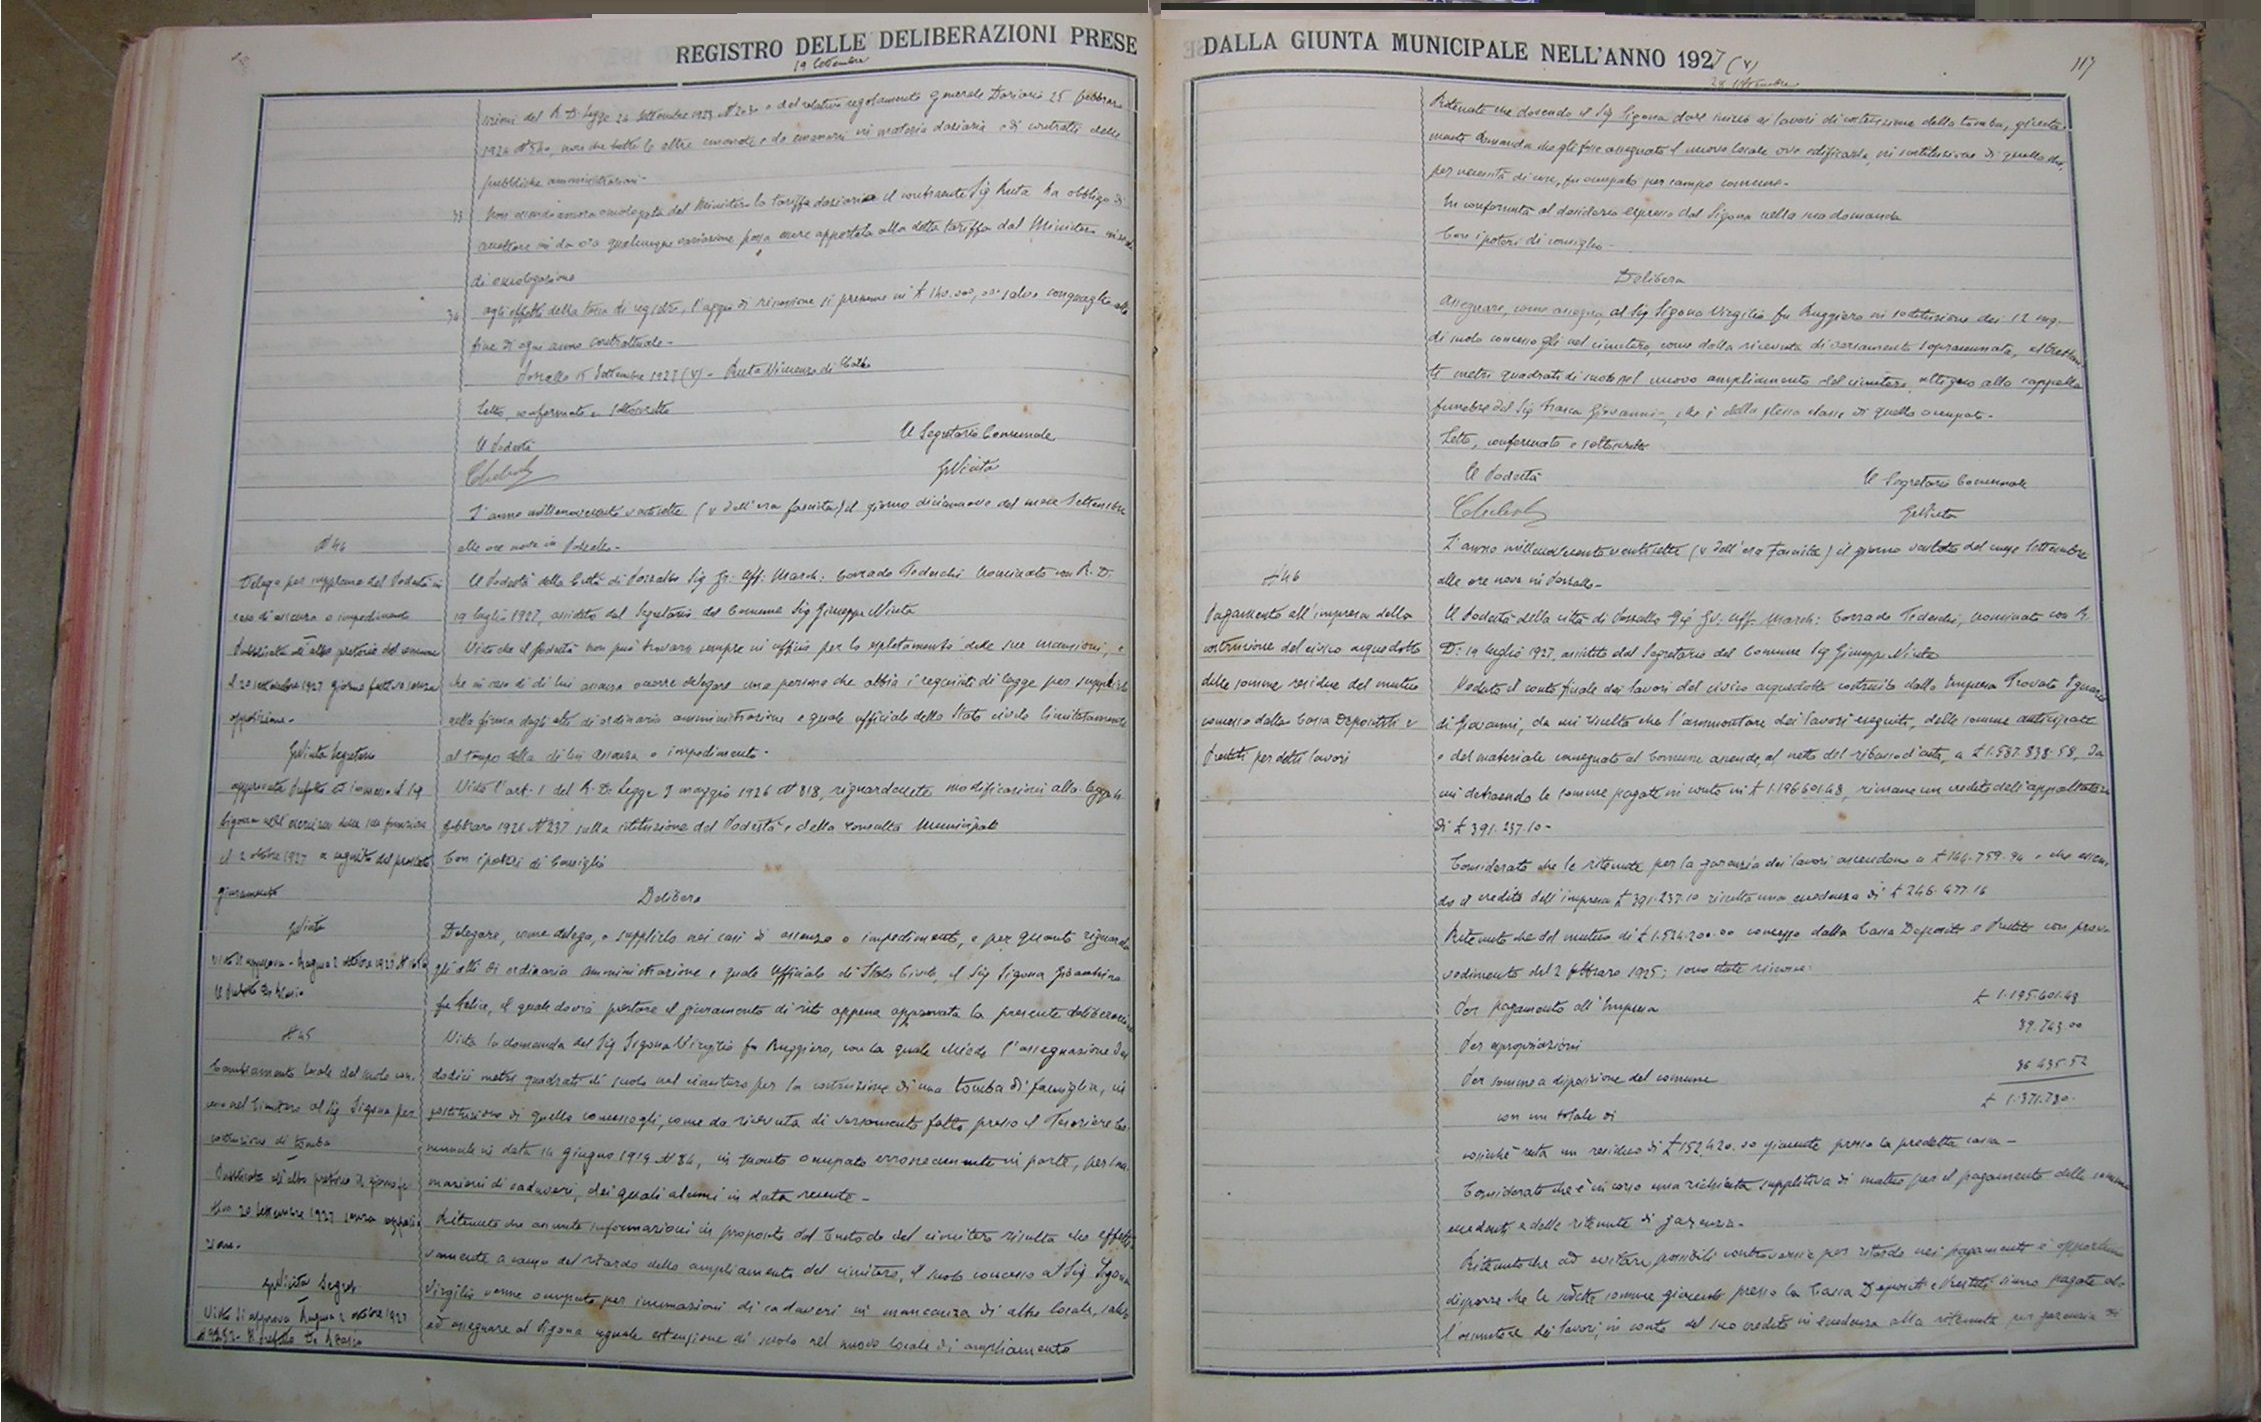 REGISTRO DELLE DELIBERAZIONI PRESE
19 Settembre
azioni del R. D. Legge 24 Settembre 1923 N 2030 e del relativo regolamento generale Daziario 25 febbraro
1924 N 540, non che tutte le altre emanate e da emanarsi in materia daziaria e di contratti delle
pubbliche amministrazioni-
33 Non essendo ancora omologata dal Ministero la tariffa daziaria il contraente Sig Ruta ha obbligo di
accettare sin da ora qualunque variazione possa essere apportata alla detta tariffa dal Ministero in sede
di omologazione
34 agli effetti della tassa di registro, l'aggio di riscossione si presume in £ 140.000,00 salvo conguaglio alla
fine di ogni anno contrattuale-
Pozzallo 15 Settembre 1927 (V) - Ruta Vincenzo di
Letto, confermato e sottoscritto
Il Podestà
Il Segretario Comunale
GNinta
L'anno millenovecento ventisette (V dell'era fascista) il giorno diciannove del mese Settembre
alle ore nove in Pozzallo-
N 44
Delega per supplenza del Podestà in
caso di assenza o impedimento
Pubblicata all'albo pretorio del comune
il 20 settembre 1927 giorno festivo senza
opposizione-
Segretario
approvata
Sigona nell'esercizio delle sue funzioni
il 2 ottobre 1927 a seguito del prestato
giuramento
Visto si approva - Ragusa 2 ottobre 1927
Il Prefetto
Il Podestà della Città di Pozzallo Sig Gr: Uff: March: Corrado Tedeschi nominato con R. D.
19 luglio 1927, assistito dal Segretario del Comune Sig Giuseppe Ninta
Visto che il podestà non può trovarsi sempre in ufficio per lo espletamento delle sue mansioni, e
che in caso di di lui assenza occorre delegare una persona che abbia i requisiti di legge per supplirlo
nella firma degli atti di ordinaria amministrazione e quale ufficiale dello Stato civile limitatamente
al tempo della di lui assenza o impedimento-
Visto l'art. 1 del R. D. Legge 9 maggio 1926 N 818, riguardante modificazioni alla legge 4
febbraro 1926 N 237 sulla istituzione del Podestà e della Consulta Municipale
Con i poteri di Consiglio
Delibera
Delegare, come delega, a supplirlo nei casi di assenza o impedimento, e per quanto riguarda
gli atti di ordinaria amministrazione e quale Ufficiale di Stato Civile, il Sig Sigona Giambina
fu Felice, il quale dovrà prestare il giuramento di rito appena approvata la presente deliberazione
N 45
Cambiamento locale del suolo con-
cesso nel Cimitero al Sig Sigona per
costruzione di tomba
Pubblicata all'albo pretorio il giorno fe-
stivo 20 Settembre 1927 senza opposi-
zione.
Segret
Visto Si approva Ragusa 2 ottobre 1927
Vista la domanda del Sig Sigona Virgilio fu Ruggiero, con la quale chiede l'assegnazione di
dodici metri quadrati di suolo nel cimitero per la costruzione di una tomba di famiglia, in
sostituzione di quello concessogli, come da ricevuta di versamento fatto presso il Tesoriere Co-
munale in data 14 giugno 1919 N 84, in quanto occupato erroneamente in parte, per inu-
mazioni di cadaveri, dei quali alcuni in data recente-
Ritenuto che assunte informazioni in proposito dal Custode del cimitero risulta che effetti-
vamente a causa del ritardo dello ampliamento del cimitero, il suolo concesso al Sig Sigona
Virgilio venne occupato per inumazioni di cadaveri in mancanza di altro locale, salvo
ad assegnare al Sigona uguale estensione di suolo nel nuovo locale di ampliamento
DALLA GIUNTA MUNICIPALE NELL'ANNO 1927 (V)
28 Settembre
117
Ritenuto che dovendo il Sig Sigona dare inizio ai lavori di costruzione della tomba, giusta-
mente domanda che gli fosse assegnato il nuovo locale ove edificarla, in sostituzione di quello che,
per necessità di cose, fu occupato per campo comune-
In conformità al desiderio espresso dal Sigona nella sua domanda
Con i poteri di consiglio-
Delibera
Assegnare, come assegna, al Sig Sigona Virgilio fu Ruggiero in sostituzione dei 12 mq.
di suolo concessogli nel cimitero, come dalla ricevuta di versamento sopracennata, altrettan-
ti metri quadrati di suolo nel nuovo ampliamento del cimitero attiguo alla cappella
funebre del Sig Giovanni, che è della stessa classe di quello occupato-
Letto, confermato e sottoscritto
Il Podestà
Il Segretario Comunale
GNinta
L'anno millenovecento ventisette (V dell'era Fascista) il giorno ventotto del mese Settembre
alle ore nove in Pozzallo-
N 46
Pagamento all'impresa della
costruzione del civico acquedotto
delle somme residue del mutuo
concesso dalla Cassa Depositi e
Prestiti per detti lavori
Il Podestà della città di Pozzallo Sig Gr: Uff: March: Corrado Tedeschi, nominato con R.
D: 19 luglio 1927, assistito dal Segretario del Comune Sig Giuseppe Ninta
Veduto il conto finale dei lavori del civico acquedotto costruito dalla Impresa Trovato Ignazio
di Giovanni, da cui risulta che l'ammontare dei lavori eseguiti, delle somme anticipate
e del materiale consegnato al Comune ascende, al netto del ribasso d'asta, a £ 1.587.838.58, da
cui detraendo le somme pagate in conto in £ 1.196601.48, rimane un credito dell'appaltatore
di £ 391.237.10-
Considerato che le ritenute per la garanzia dei lavori ascendono a £ 144.759.94 e che essen-
do il credito dell'impresa £ 391.237.10 risulta una eccedenza di £ 246.477.16
Ritenuto che del mutuo di £ 1.524.200.00 concesso dalla Cassa Depositi e Prestiti con prov-
vedimento del 2 febbraro 1925; sono state riscosse:
Per pagamento all'Impresa £ 1.195.601.48
Per espropriazioni 39.743.00
Per somme a disposizione del comune 36.435.52
con un totale di £ 1.371.780.
cosicchè resta un residuo di £ 152420.00 giacente presso la predetta cassa-
Considerato che è in corso una richiesta suppletiva di mutuo per il pagamento delle somme
eccedenti e delle ritenute di garanzia-
Ritenuto che ad evitare possibili controversie per ritardo nei pagamenti è opportuno
disporre che le suddette somme giacenti presso la Cassa Depositi e Prestiti siano pagate al-
l'assuntore dei lavori, in conto del suo credito in eccedenza alla ritenuta per garanzia di